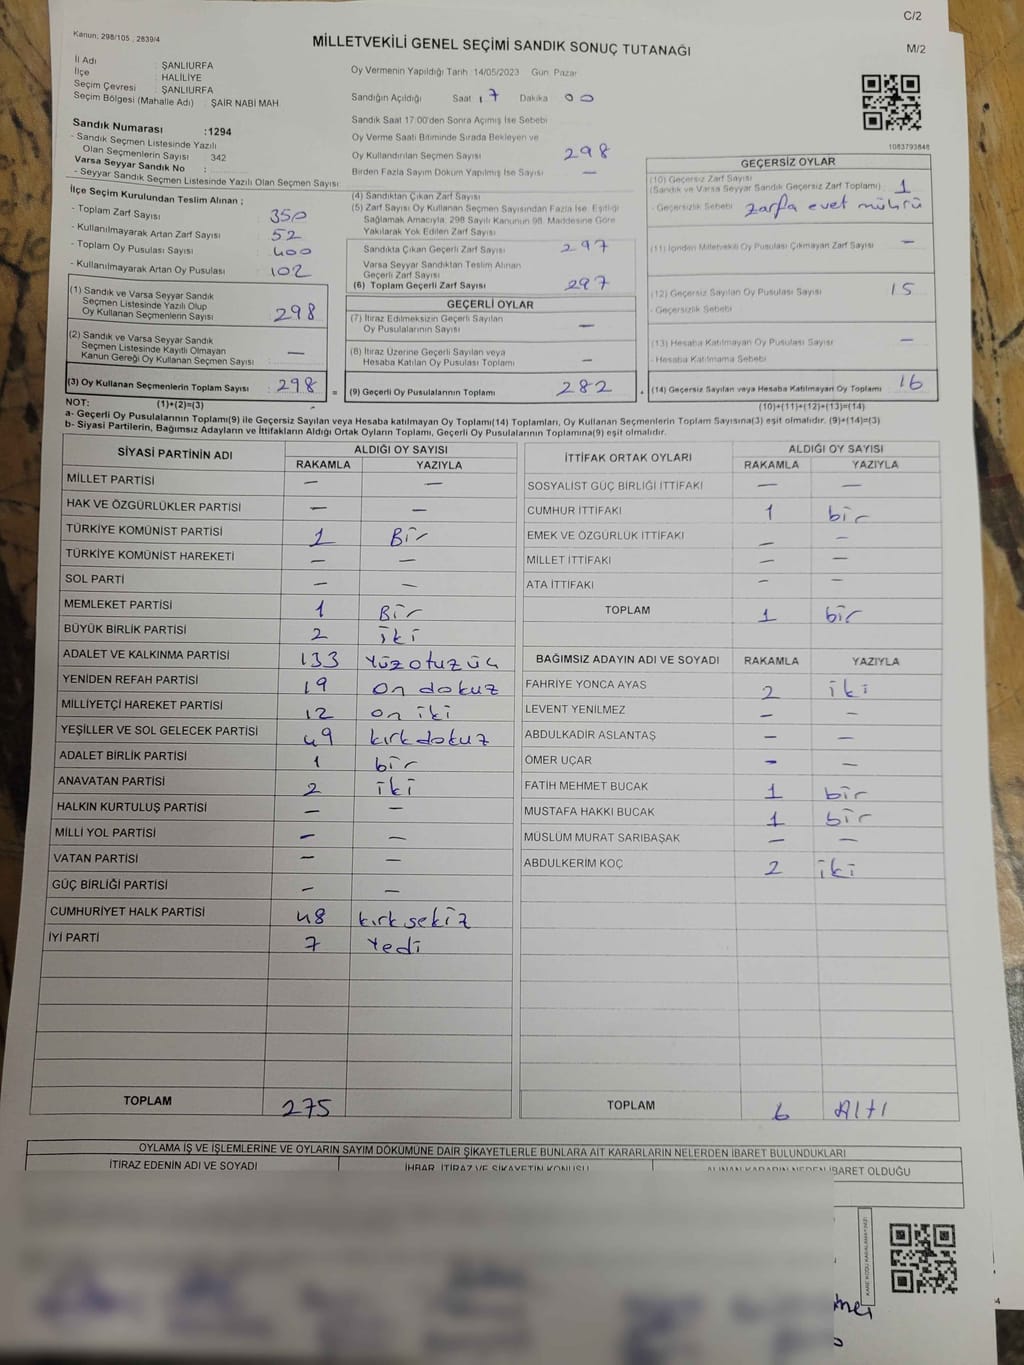 C/2
Kanun: 298/105 , 2839/4
MİLLETVEKİLİ GENEL SEÇİMİ SANDIK SONUÇ TUTANAĞI
M/2
İl Adı : ŞANLIURFA
İlçe : HALİLİYE
Seçim Çevresi : ŞANLIURFA
Seçim Bölgesi (Mahalle Adı) : ŞAİR NABİ MAH.
Sandık Numarası :1294
- Sandık Seçmen Listesinde Yazılı
Olan Seçmenlerin Sayısı : 342
Varsa Seyyar Sandık No :
- Seyyar Sandık Seçmen Listesinde Yazılı Olan Seçmen Sayısı :
Oy Vermenin Yapıldığı Tarih :14/05/2023 Gün: Pazar
Sandığın Açıldığı Saat 17 Dakika 00
Sandık Saat 17:00'den Sonra Açılmış İse Sebebi
Oy Verme Saati Bitiminde Sırada Bekleyen ve
Oy Kullandırılan Seçmen Sayısı 298
Birden Fazla Sayım Döküm Yapılmış İse Sayısı —
1083793848
İlçe Seçim Kurulundan Teslim Alınan ;
- Toplam Zarf Sayısı : 350
- Kullanılmayarak Artan Zarf Sayısı : 52
- Toplam Oy Pusulası Sayısı : 400
- Kullanılmayarak Artan Oy Pusulası : 102
(1) Sandık ve Varsa Seyyar Sandık
Seçmen Listesinde Yazılı Olup
Oy Kullanan Seçmenlerin Sayısı : 298
(2) Sandık ve Varsa Seyyar Sandık
Seçmen Listesinde Kayıtlı Olmayan
Kanun Gereği Oy Kullanan Seçmen Sayısı : —
(3) Oy Kullanan Seçmenlerin Toplam Sayısı : 298 =
(1)+(2)=(3)
(4) Sandıktan Çıkan Zarf Sayısı
(5) Zarf Sayısı Oy Kullanan Seçmen Sayısından Fazla İse, Eşitliği
Sağlamak Amacıyla, 298 Sayılı Kanunun 98. Maddesine Göre
Yakılarak Yok Edilen Zarf Sayısı
Sandıkta Çıkan Geçerli Zarf Sayısı 297
Varsa Seyyar Sandıktan Teslim Alınan
Geçerli Zarf Sayısı
(6) Toplam Geçerli Zarf Sayısı 297
GEÇERLİ OYLAR
(7) İtiraz Edilmeksizin Geçerli Sayılan
Oy Pusulalarının Sayısı —
(8) İtiraz Üzerine Geçerli Sayılan veya
Hesaba Katılan Oy Pusulaları Toplamı —
(9) Geçerli Oy Pusulalarının Toplamı 282 +
GEÇERSİZ OYLAR
(10) Geçersiz Zarf Sayısı
(Sandık ve Varsa Seyyar Sandık Geçersiz Zarf Toplamı) : 1
- Geçersizlik Sebebi : zarfa evet mührü
(11) İçinden Milletvekili Oy Pusulası Çıkmayan Zarf Sayısı : —
(12) Geçersiz Sayılan Oy Pusulası Sayısı : 15
- Geçersizlik Sebebi
(13) Hesaba Katılmayan Oy Pusulası Sayısı : —
- Hesaba Katılmama Sebebi
(14) Geçersiz Sayılan veya Hesaba Katılmayan Oy Toplamı : 16
(10)+(11)+(12)+(13)=(14)
NOT:
a- Geçerli Oy Pusulalarının Toplamı(9) ile Geçersiz Sayılan veya Hesaba katılmayan Oy Toplamı(14) Toplamları, Oy Kullanan Seçmenlerin Toplam Sayısına(3) eşit olmalıdır. (9)+(14)=(3)
b- Siyasi Partilerin, Bağımsız Adayların ve İttifakların Aldığı Ortak Oyların Toplamı, Geçerli Oy Pusulalarının Toplamına(9) eşit olmalıdır.
SİYASİ PARTİNİN ADI ALDIĞI OY SAYISI
RAKAMLA YAZIYLA
MİLLET PARTİSİ — —
HAK VE ÖZGÜRLÜKLER PARTİSİ — —
TÜRKİYE KOMÜNİST PARTİSİ 1 Bir
TÜRKİYE KOMÜNİST HAREKETİ — —
SOL PARTİ — —
MEMLEKET PARTİSİ 1 Bir
BÜYÜK BİRLİK PARTİSİ 2 iki
ADALET VE KALKINMA PARTİSİ 133 Yüzotuzüç
YENİDEN REFAH PARTİSİ 19 on dokuz
MİLLİYETÇİ HAREKET PARTİSİ 12 on iki
YEŞİLLER VE SOL GELECEK PARTİSİ 49 kırkdokuz
ADALET BİRLİK PARTİSİ 1 bir
ANAVATAN PARTİSİ 2 iki
HALKIN KURTULUŞ PARTİSİ — —
MİLLİ YOL PARTİSİ — —
VATAN PARTİSİ — —
GÜÇ BİRLİĞİ PARTİSİ — —
CUMHURİYET HALK PARTİSİ 48 kırksekiz
İYİ PARTİ 7 Yedi
TOPLAM 275
İTTİFAK ORTAK OYLARI ALDIĞI OY SAYISI
RAKAMLA YAZIYLA
SOSYALİST GÜÇ BİRLİĞİ İTTİFAKI — —
CUMHUR İTTİFAKI 1 bir
EMEK VE ÖZGÜRLÜK İTTİFAKI — —
MİLLET İTTİFAKI — —
ATA İTTİFAKI — —
TOPLAM 1 bir
BAĞIMSIZ ADAYIN ADI VE SOYADI RAKAMLA YAZIYLA
FAHRİYE YONCA AYAS 2 iki
LEVENT YENİLMEZ — —
ABDULKADİR ASLANTAŞ — —
ÖMER UÇAR — —
FATİH MEHMET BUCAK 1 bir
MUSTAFA HAKKI BUCAK 1 bir
MÜSLÜM MURAT SARIBAŞAK — —
ABDULKERİM KOÇ 2 iki
TOPLAM 6 Altı
OYLAMA İŞ VE İŞLEMLERİNE VE OYLARIN SAYIM DÖKÜMÜNE DAİR ŞİKAYETLERLE BUNLARA AİT KARARLARIN NELERDEN İBARET BULUNDUKLARI
İTİRAZ EDENİN ADI VE SOYADI İHBAR, İTİRAZ VE ŞİKAYETİN KONUSU ALINAN KARARIN NEDEN İBARET OLDUĞU